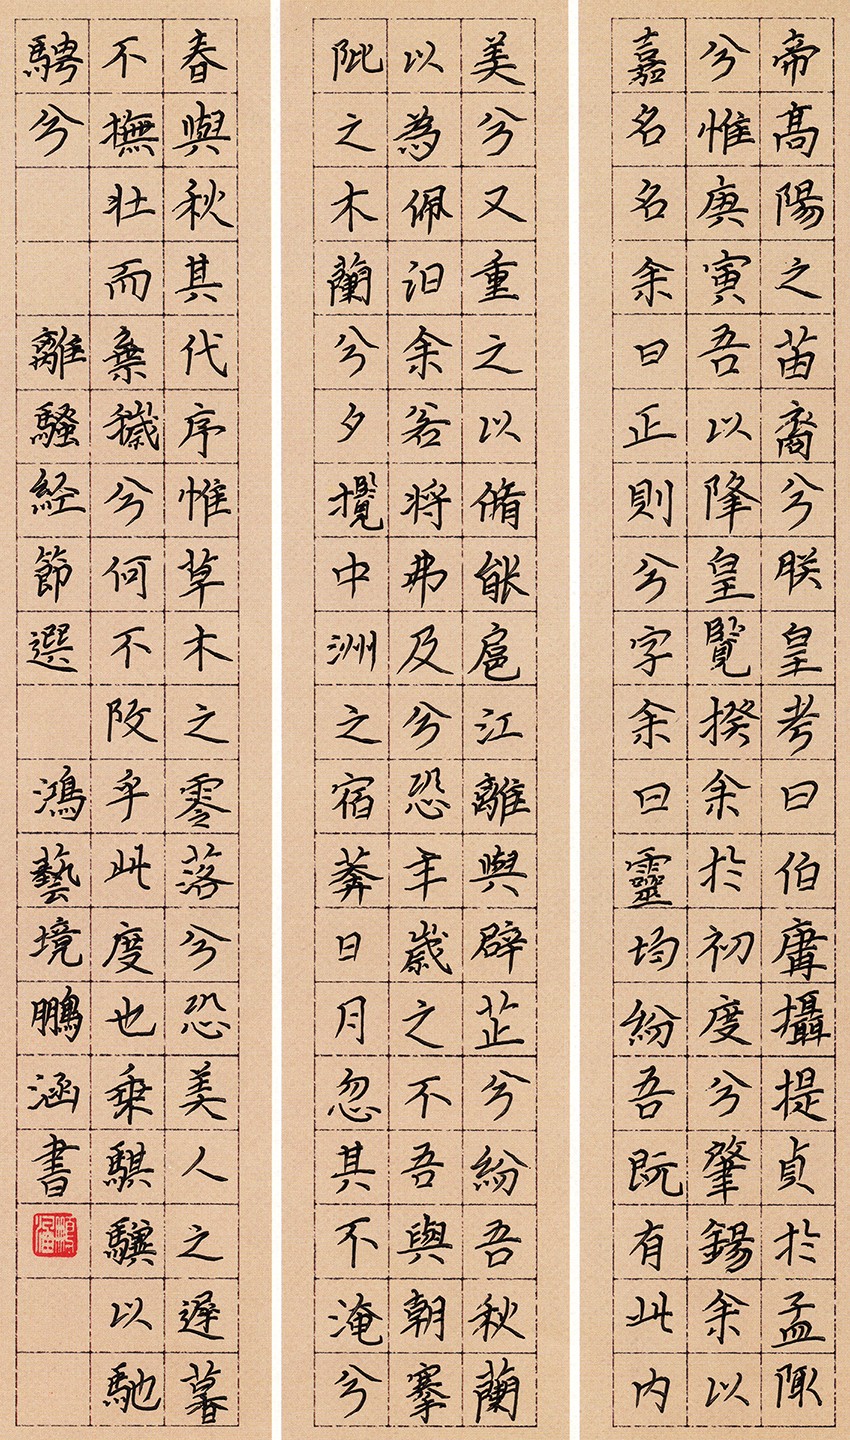 帝高陽之苗裔兮朕皇考曰伯庸攝提貞於孟陬
兮惟庚寅吾以降皇覽揆余於初度兮肇錫余以
嘉名名余曰正則兮字余曰靈均紛吾既有此内
美兮又重之以脩能扈江離與辟芷兮紛吾秋蘭
以為佩汩余若将弗及兮恐年歲之不吾與朝搴
阰之木蘭兮夕攬中洲之宿莽日月忽其不淹兮
春與秋其代序惟草木之零落兮恐美人之遲暮
不撫壯而棄穢兮何不改乎此度也乘騏驥以馳
騁兮 離騷経節選 鴻藝境鵬涵書